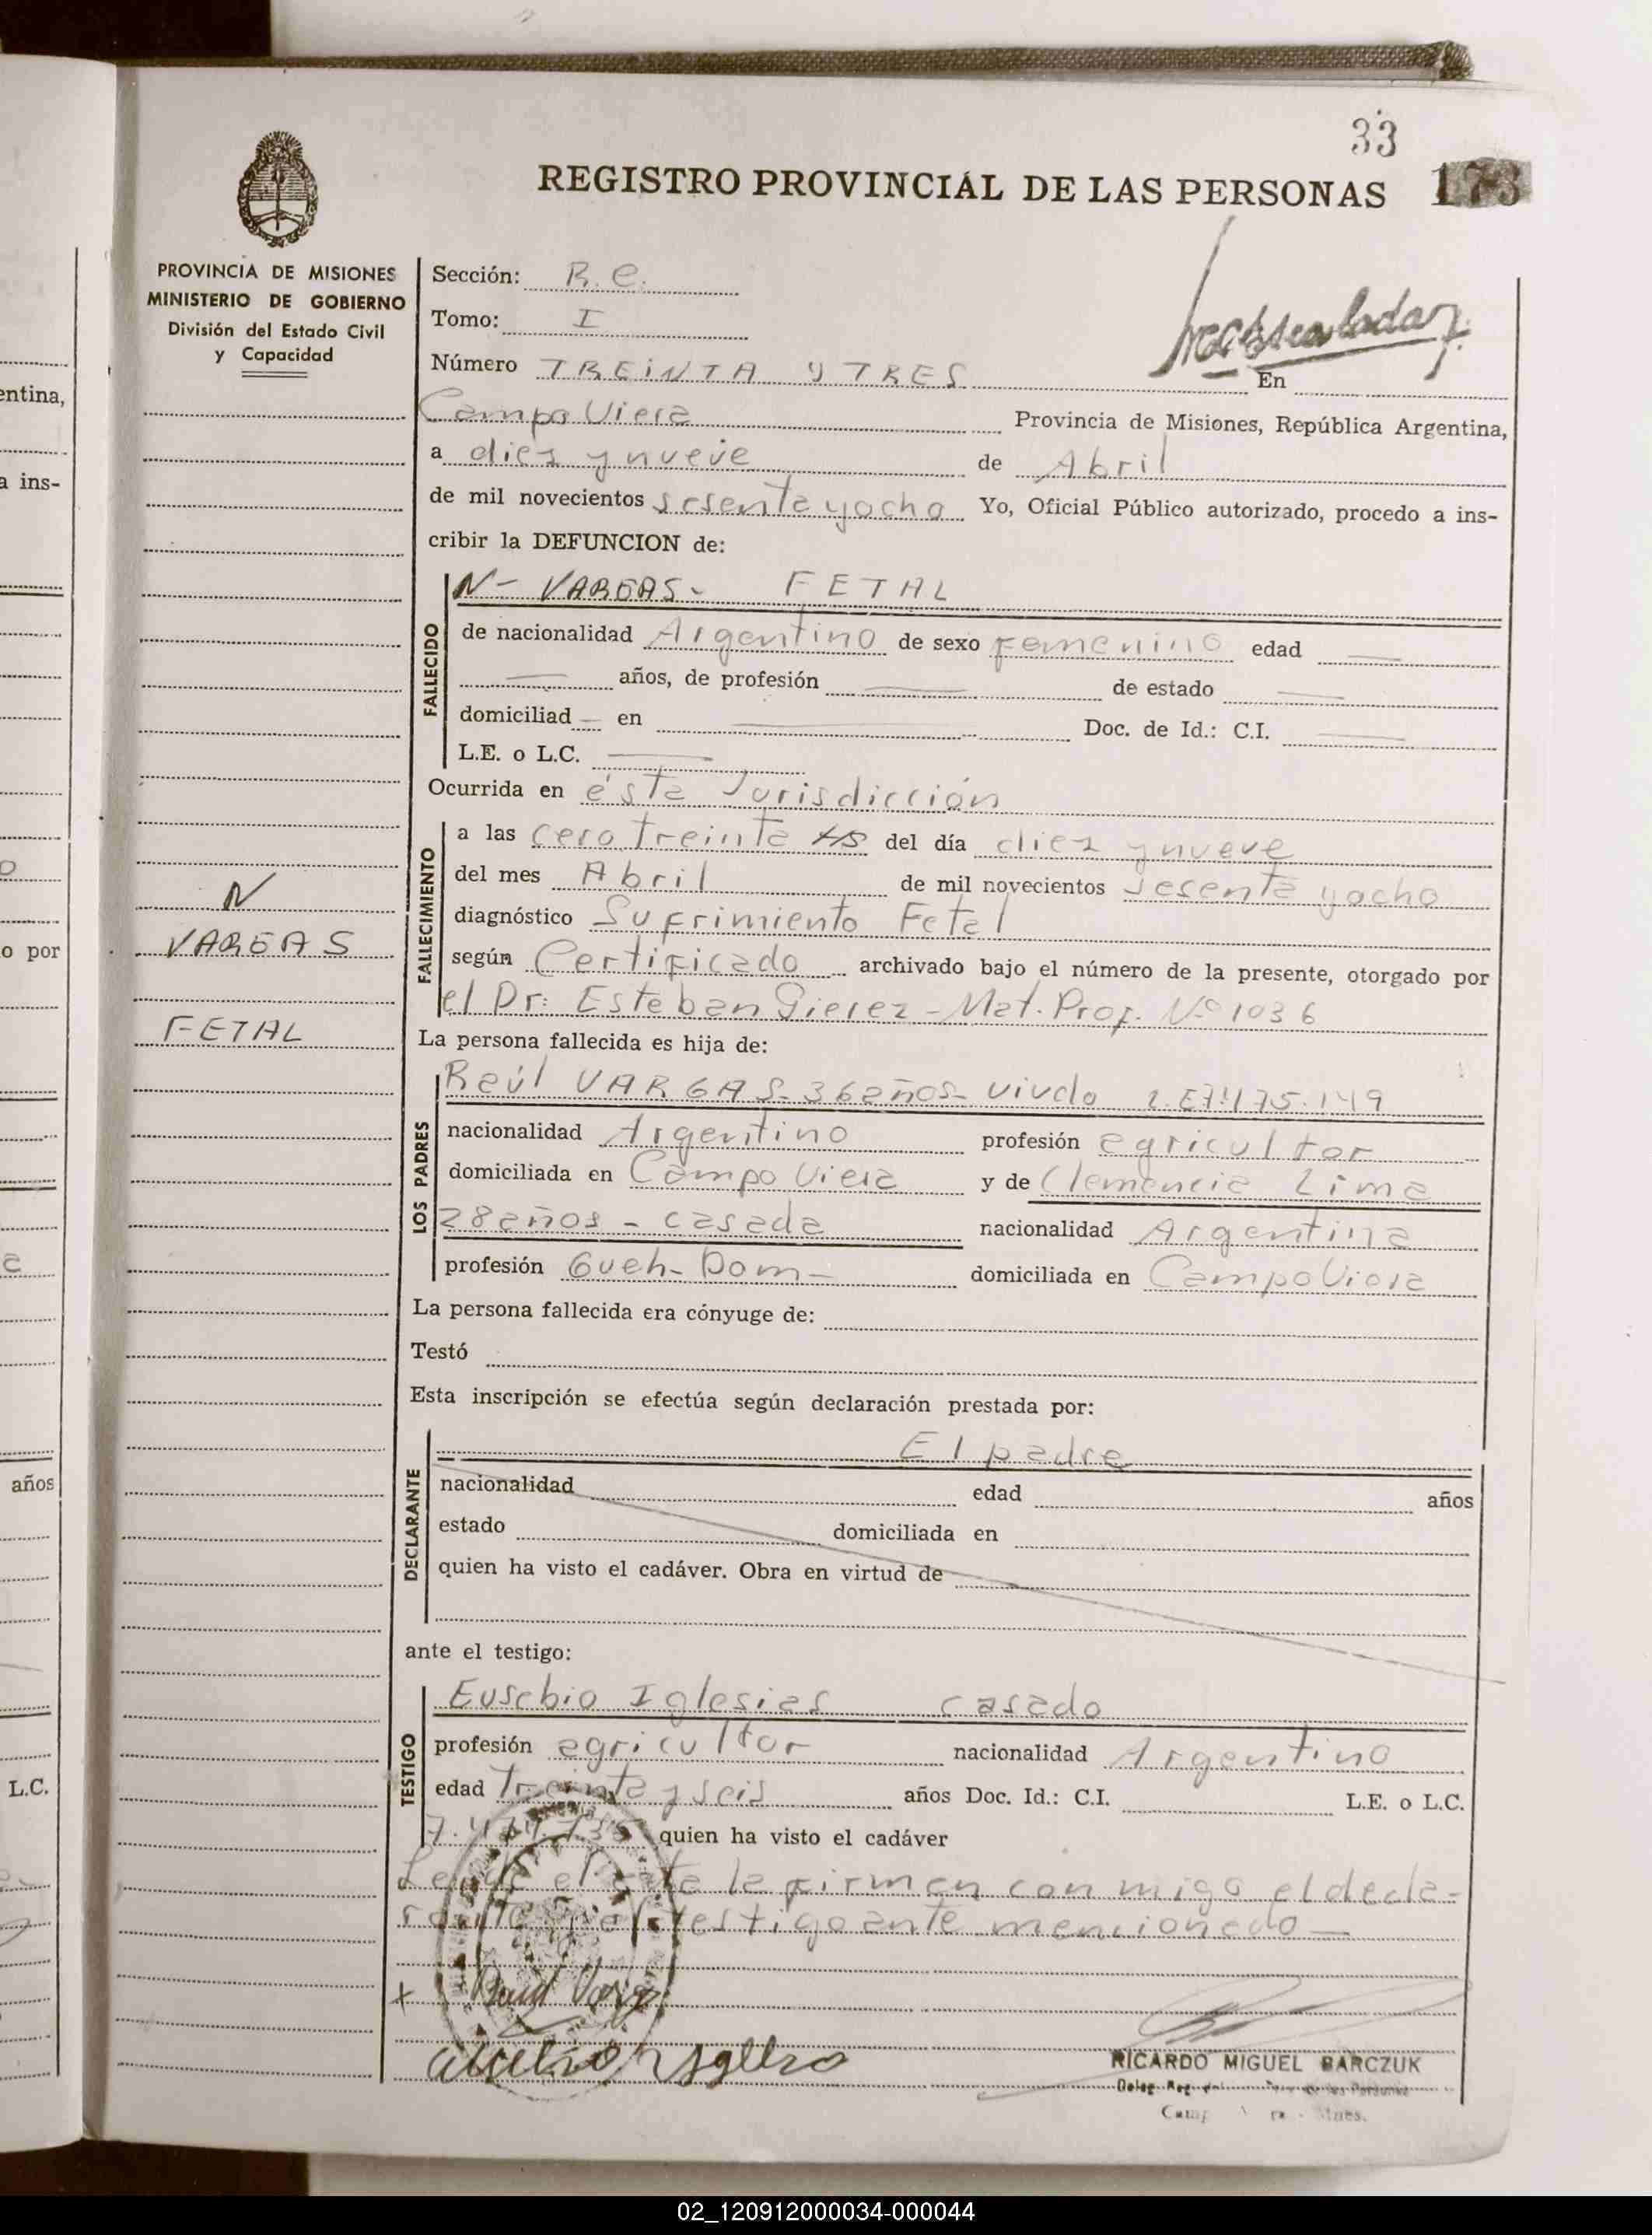 33
REGISTRO PROVINCIAL DE LAS PERSONAS 173
PROVINCIA DE MISIONES
MINISTERIO DE GOBIERNO
División del Estado Civil
y Capacidad
Sección: R. C.
Tomo: I
Número TREINTA Y TRES En
Campo Viera Provincia de Misiones, República Argentina,
a diez y nueve de Abril
de mil novecientos sesenta y ocho Yo, Oficial Público autorizado, procedo a ins-
cribir la DEFUNCION de:
N- VARGAS- FETAL
FALLECIDO
de nacionalidad Argentino de sexo Femenino edad
años, de profesión de estado
domiciliad en Doc. de Id.: C.I.
L.E. o L.C.
Ocurrida en ésta Jurisdicción
FALLECIMIENTO
a las cero treinta HS del día diez y nueve
del mes Abril de mil novecientos sesenta y ocho
diagnóstico Sufrimiento Fetal
según Certificado archivado bajo el número de la presente, otorgado por
el Dr: Esteban Gierez - Mat. Prof. Nº 1036
N
VARGAS
FETAL
La persona fallecida es hija de:
LOS PADRES
Raúl VARGAS- 36 años- viudo L.E 7.475.149
nacionalidad Argentino profesión agricultor
domiciliada en Campo Viera y de Clemencia Lima
28 años - casada nacionalidad Argentina
profesión Queh- Dom- domiciliada en Campo Viera
La persona fallecida era cónyuge de:
Testó
Esta inscripción se efectúa según declaración prestada por:
DECLARANTE
El padre
nacionalidad edad años
estado domiciliada en
quien ha visto el cadáver. Obra en virtud de
ante el testigo:
TESTIGO
Eusebio Iglesias casado
profesión agricultor nacionalidad Argentino
edad Treinta y seis años Doc. Id.: C.I. L.E. o L.C.
quien ha visto el cadáver
Leida el acta la firman con migo el decla-
rante y el testigo ante mencionado
x Raul Vargas
RICARDO MIGUEL BARCZUK
entina,
a ins-
o por
años
L.C.
02_120912000034-000044